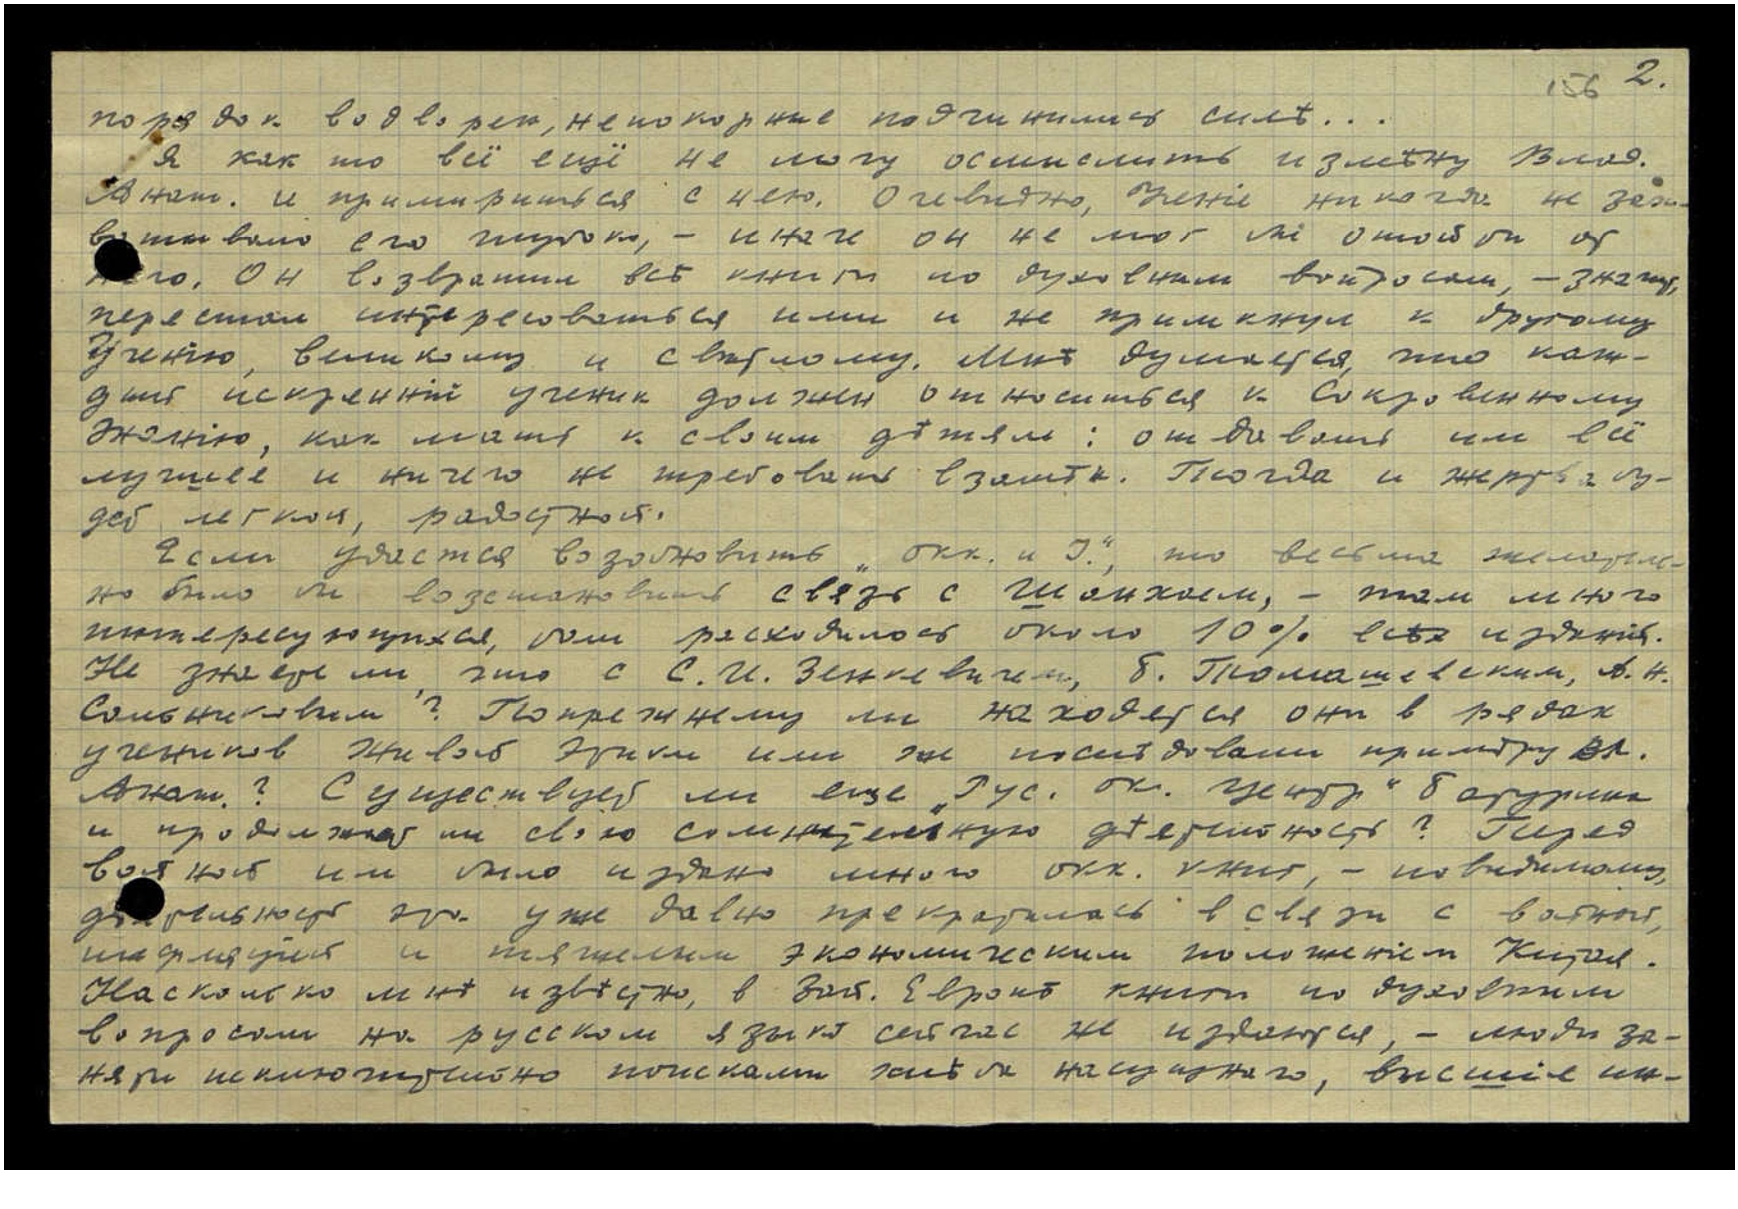 156 2.
порядок водворен, непокорные подчинились силѣ...
Я как то всё ещё не могу осмыслить измѣну Влад.
Анат. и примириться с нею. Очевидно, Ученіе никогда не зах-
ватывало его глубоко, – иначе он не мог бы отойти от
него. Он возвратил всѣ книги по духовным вопросам, – значит,
перестал интересоваться ими и не примкнул к другому
Ученію, великому и свѣтлому. Мнѣ думается, что каж-
дый искренній ученик должен относиться к Сокровенному
Знанію, как мать к своим дѣтям: отдавать им всё
лучшее и ничего не требовать взамѣн. Тогда и жертва бу-
дет легкой, радостной.
Если удастся возобновить „Окк. и І.“, то весьма желатель-
но было бы возстановить связь с Шанхаем, – там много
интересующихся, там расходилось около 10% всѣх изданій.
Не знаете ли, что с С. И. Зенкевичем, Б. Томашевским, А. Н.
Сальниковым? Попрежнему ли находятся они в рядах
учеников Живой Этики или же послѣдовали примѣру Вл.
Анат.? Существует ли еще „Рус. Ок. Центр“ Батурина
и продолжает ли свою сомнительную дѣятельность? Перед
войной им было издано много окк. книг, – повидимому,
дѣятельность эта уже давно прекратилась в связи с войной,
инфляціей и тяжелым экономическим положеніем Китая.
Насколько мнѣ извѣстно, в Зап. Европѣ книги по духовным
вопросам на русском языкѣ сейчас не издаются, – люди за-
няты исключительно поисками хлѣба насущнаго, высшіе ин-